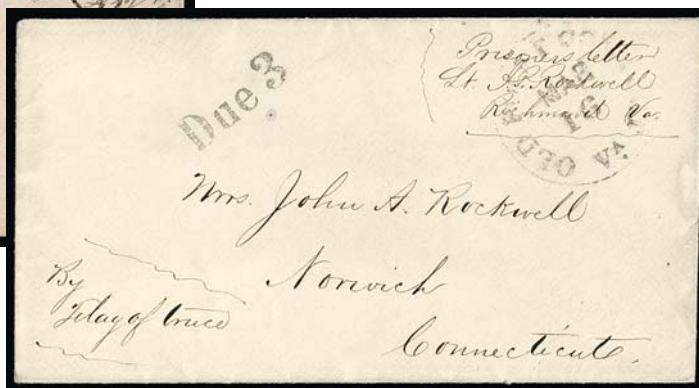 Due 3
Prisoners letter
Lt. A.P. Rockwell
Richmond Va.
OLD VA.
MAR
16
Mrs. John A. Rockwell
Norwich
Connecticut.
By
Flag of truce